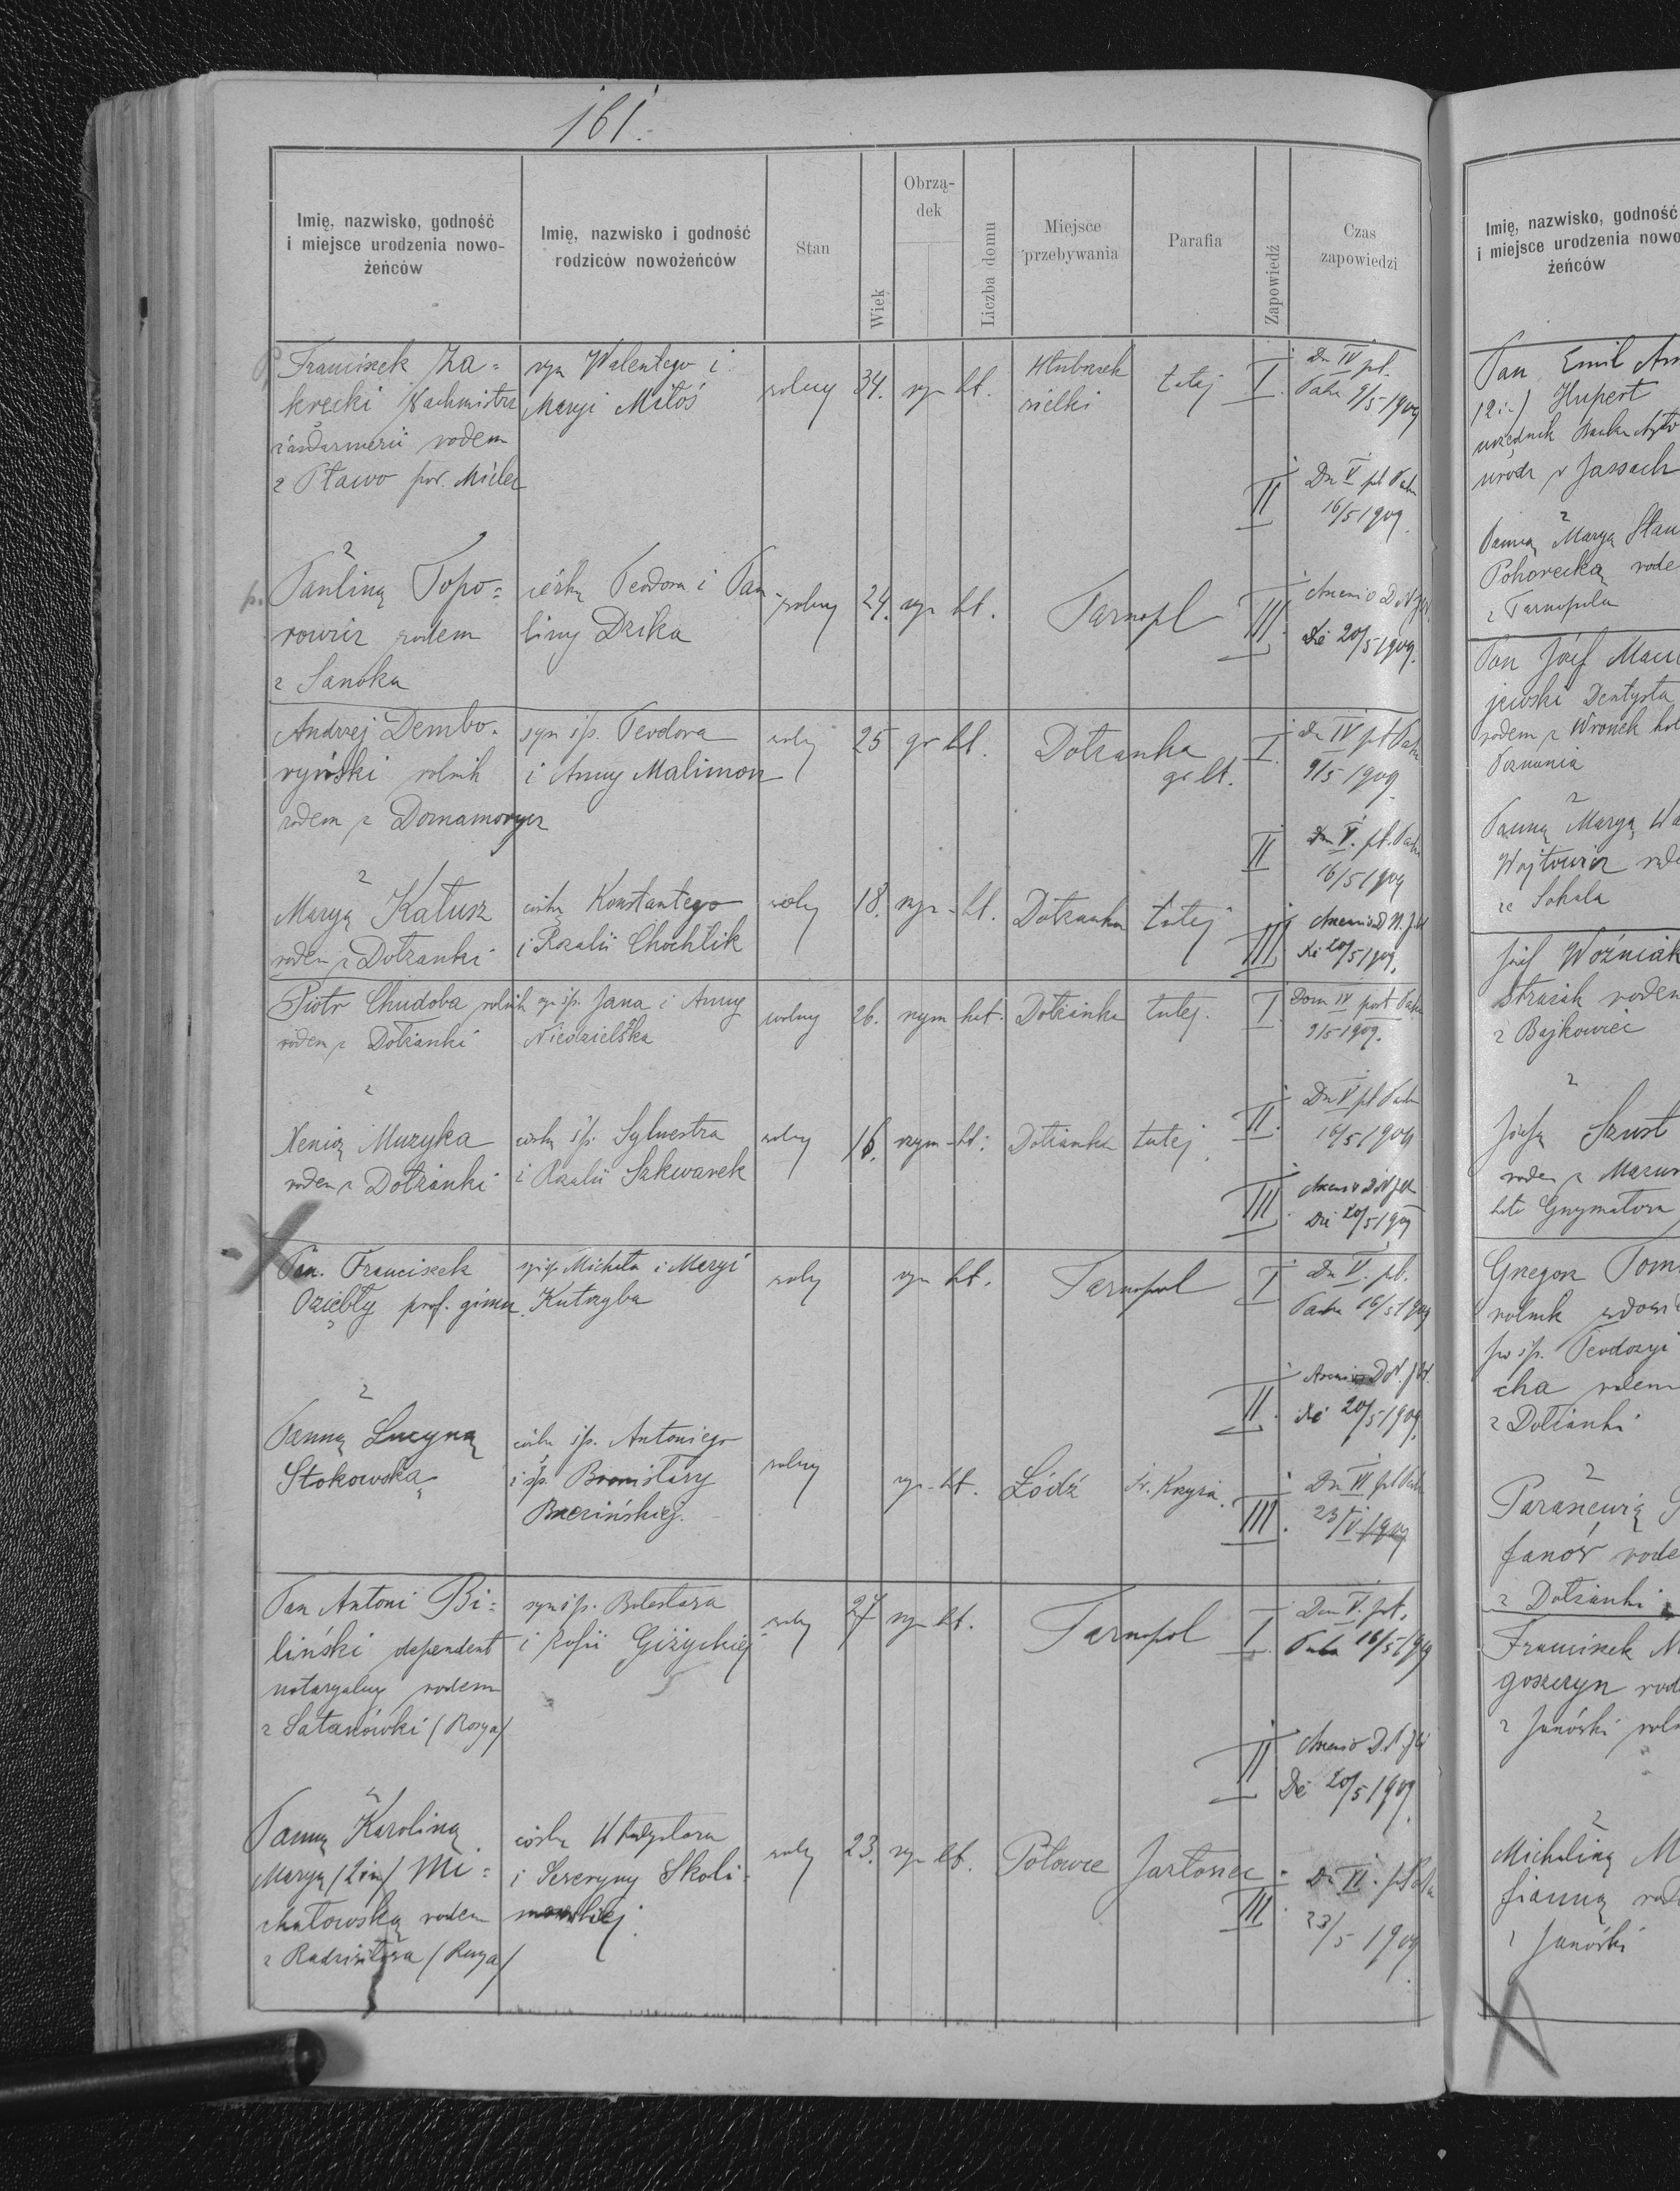 161.
Imię, nazwisko, godność
i miejsce urodzenia nowo-
żeńców
Imię, nazwisko i godność
rodziców nowożeńców
Stan
Wiek
Obrzą-
dek
Liczba domu
Miejsce
przebywania
Parafia
Zapowiedź
Czas
zapowiedzi
Franciszek Za=
krecki Wachmistrz
żandarmerii rodem
z Pławo pow. Mielec
syn Walentego i
Maryi Małoś
wolny 34. rzym kt.
Hłuboczek
wielki
tutej
I. Dn IV pt.
Pascha 9/5 1909
II Dn V pt Pascha
16/5 1909.
z
Pauliną Topo=
rowicz rodem
z Sanoka
córką Teodora i Pau
liny Dzika
wolny 24. rzym kt.
Tarnopol
III.
Die 20/5 1909.
Andrzej Dembo-
ryński rolnik
rodem z Domamorycz
syn śp. Teodora
i Anny Malimon
wolny 25 gr kt.
Dołzanka
gr kt.
I. Dn IV pt Pascha
9/5 1909
II Dn V. pt. Pascha
16/5 1909
z
Maryą Kałusz
rodem z Dołzanki
córką Konstantego
i Rozalii Chochlik
wolny 18. rzym kt.
Dołzanka tutej
III
die 20/5 1909.
Piotr Chudoba rolnik
rodem z Dołżanki
syn śp. Jana i Anny
Niedzielska
wolny 26. rzym kat.
Dołżanka tutej.
I. Dom IV post Pascha
9/5 1909.
z
Xenią Muzyka
rodem z Dołżanki
córką śp. Sylwestra
i Rozalii Szkwarek
wolny 16. rzym kt.
Dołżanka tutej.
II. Dn V pt Pascha
16/5 1909
III.
Die 20/5 1909
Pan. Franciszek
Oziębły prof. gimn.
syn śp. Michała i Maryi
Kutrzyba
wolny rzym kt.
Tarnopol
I Dn V. pt.
Pascha 16/5 1909
II.
die 20/5 1909.
z
Panną Lucyną
Stokowską
córką śp. Antoniego
i śp. Bronisławy
Brzezińskiej.
wolny rzym kt.
Łódź Św. Krzyża.
III. Dn VI pt Pascha
23/V 1909
Pan Antoni Bi=
liński dependent
notaryalny rodem
z Satanówki (Rosya)
syn śp. Bolesława
i Zofii Giżyckiej
wolny 27 rzym kt.
Tarnopol
I. Dom V. pt.
Pascha 16/5 1909
II
Die 20/5 1909.
z
Panną Karoliną
Maryą (2im) Mi=
chałowską rodem
z Radziwiłowa (Rosya)
córką Władysława
i Seweryny Skoli-
mowskiej.
wolny 23. rzym kt.
Potowce Jazłowiec
III. Dn VI. pt Pascha
23/5 1909.
Imię, nazwisko, godność
i miejsce urodzenia nowo
żeńców
Pan Emil
(2im) Hupert
urzędnik Banku
urodz w Jassach
z
Panną Maryą
Pohorecką
z Tarnopola
Pan Józef
jewski Dentysta
rodem z Wronek
Poznania
z
Panną Maryą
Wojtowicz
ze Sokala
Józef Woźniak
strażak rodem
z Bajkowiec
z
Józefą Szust
rodem z
Grzymałowa
Grzegorz
rolnik
po śp. Teodozyi
cha rodem
z Dołżanki
z
Parascewią
Janów
z Dołżanki
Franciszek
goszczyn
z Janówki
z
Michaliną
z Janówki